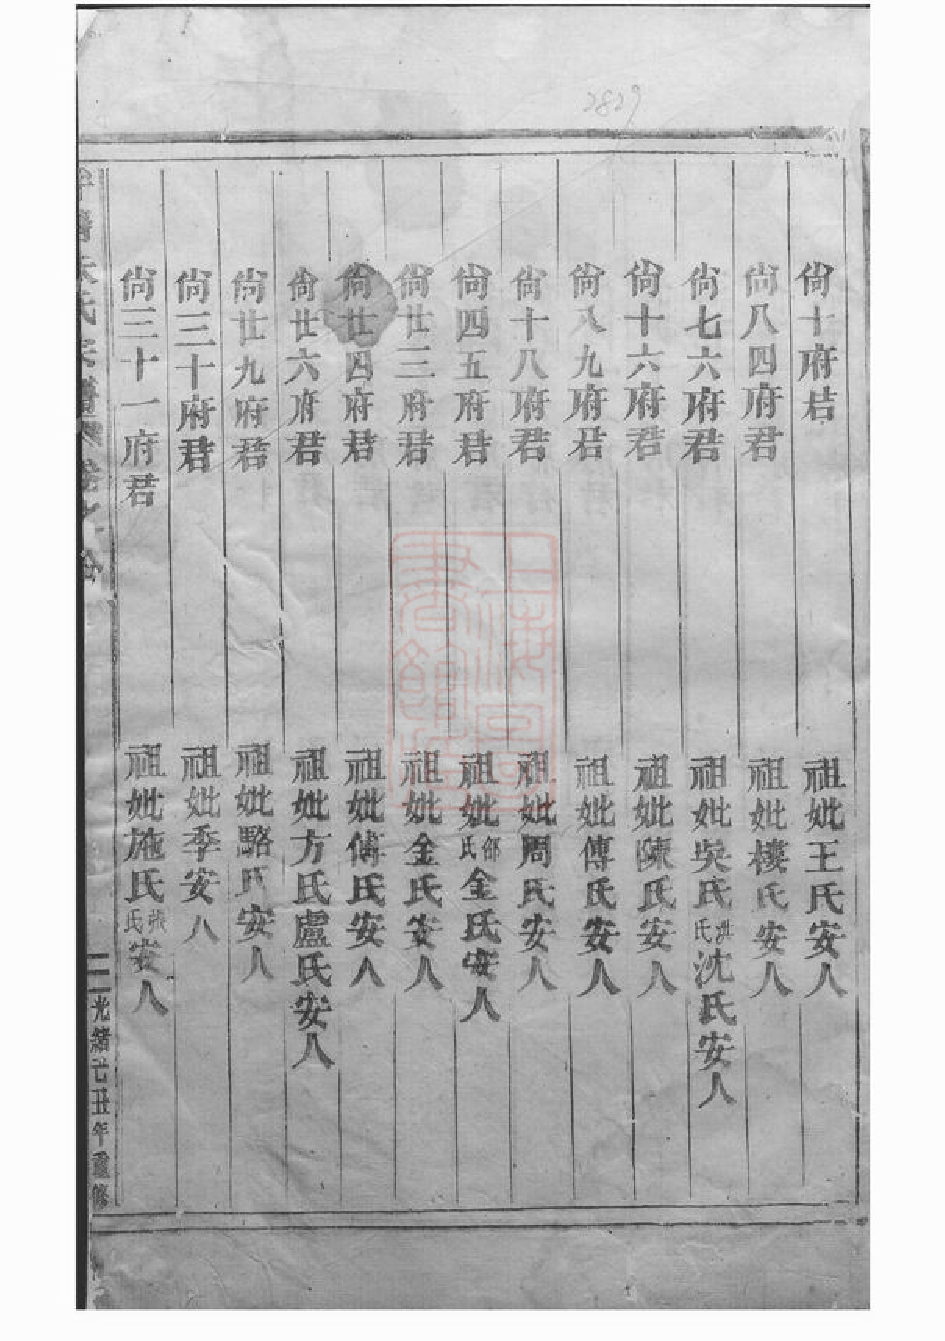 2829
尙十府君 祖妣王氏安人
尙八四府君 祖妣樓氏安人
尙七六府君 祖妣吳氏洪氏沈氏安人
尙十六府君 祖妣陳氏安人
尙八九府君 祖妣傅氏安人
尙十八府君 祖妣周氏安人
尙四五府君 祖妣邵氏金氏安人
尙廿三府君 祖妣金氏安人
尙廿四府君 祖妣傅氏安人
尙廿六府君 祖妣方氏盧氏安人
尙廿九府君 祖妣駱氏安人
尙三十府君 祖妣季安人
尙三十一府君 祖妣施氏張氏安人
氏宗譜 卷之
二 光緒丑年重修
上海圖書館藏